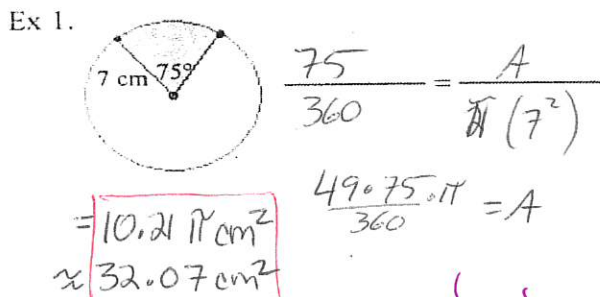 Ex 1.
7 cm 75°
75/360 = A/π(7²)
49·75·π/360 = A
= 10.21 π cm²
≈ 32.07 cm²